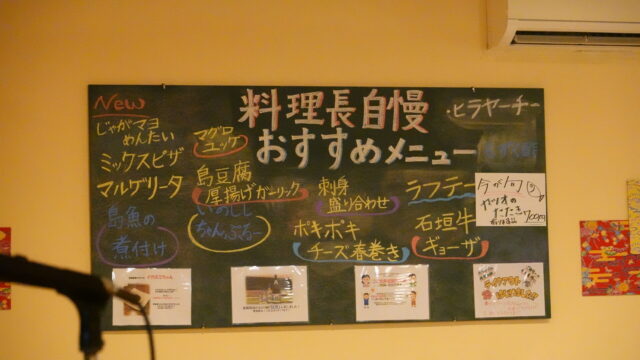 New
じゃがマヨ
めんたい
ミックスピザ
マルゲリータ
島魚の
煮付け
マグロ
ユッケ
島豆腐
厚揚げガーリック
いのしし
ちゃんぷるー
料理長自慢
おすすめメニュー
刺身
盛り合わせ
ポキポキ
チーズ春巻き
・ヒラヤーチー
ラフテー
石垣牛
ギョーザ
今が旬
たたき
700円
テイクアウト
はじめました!!